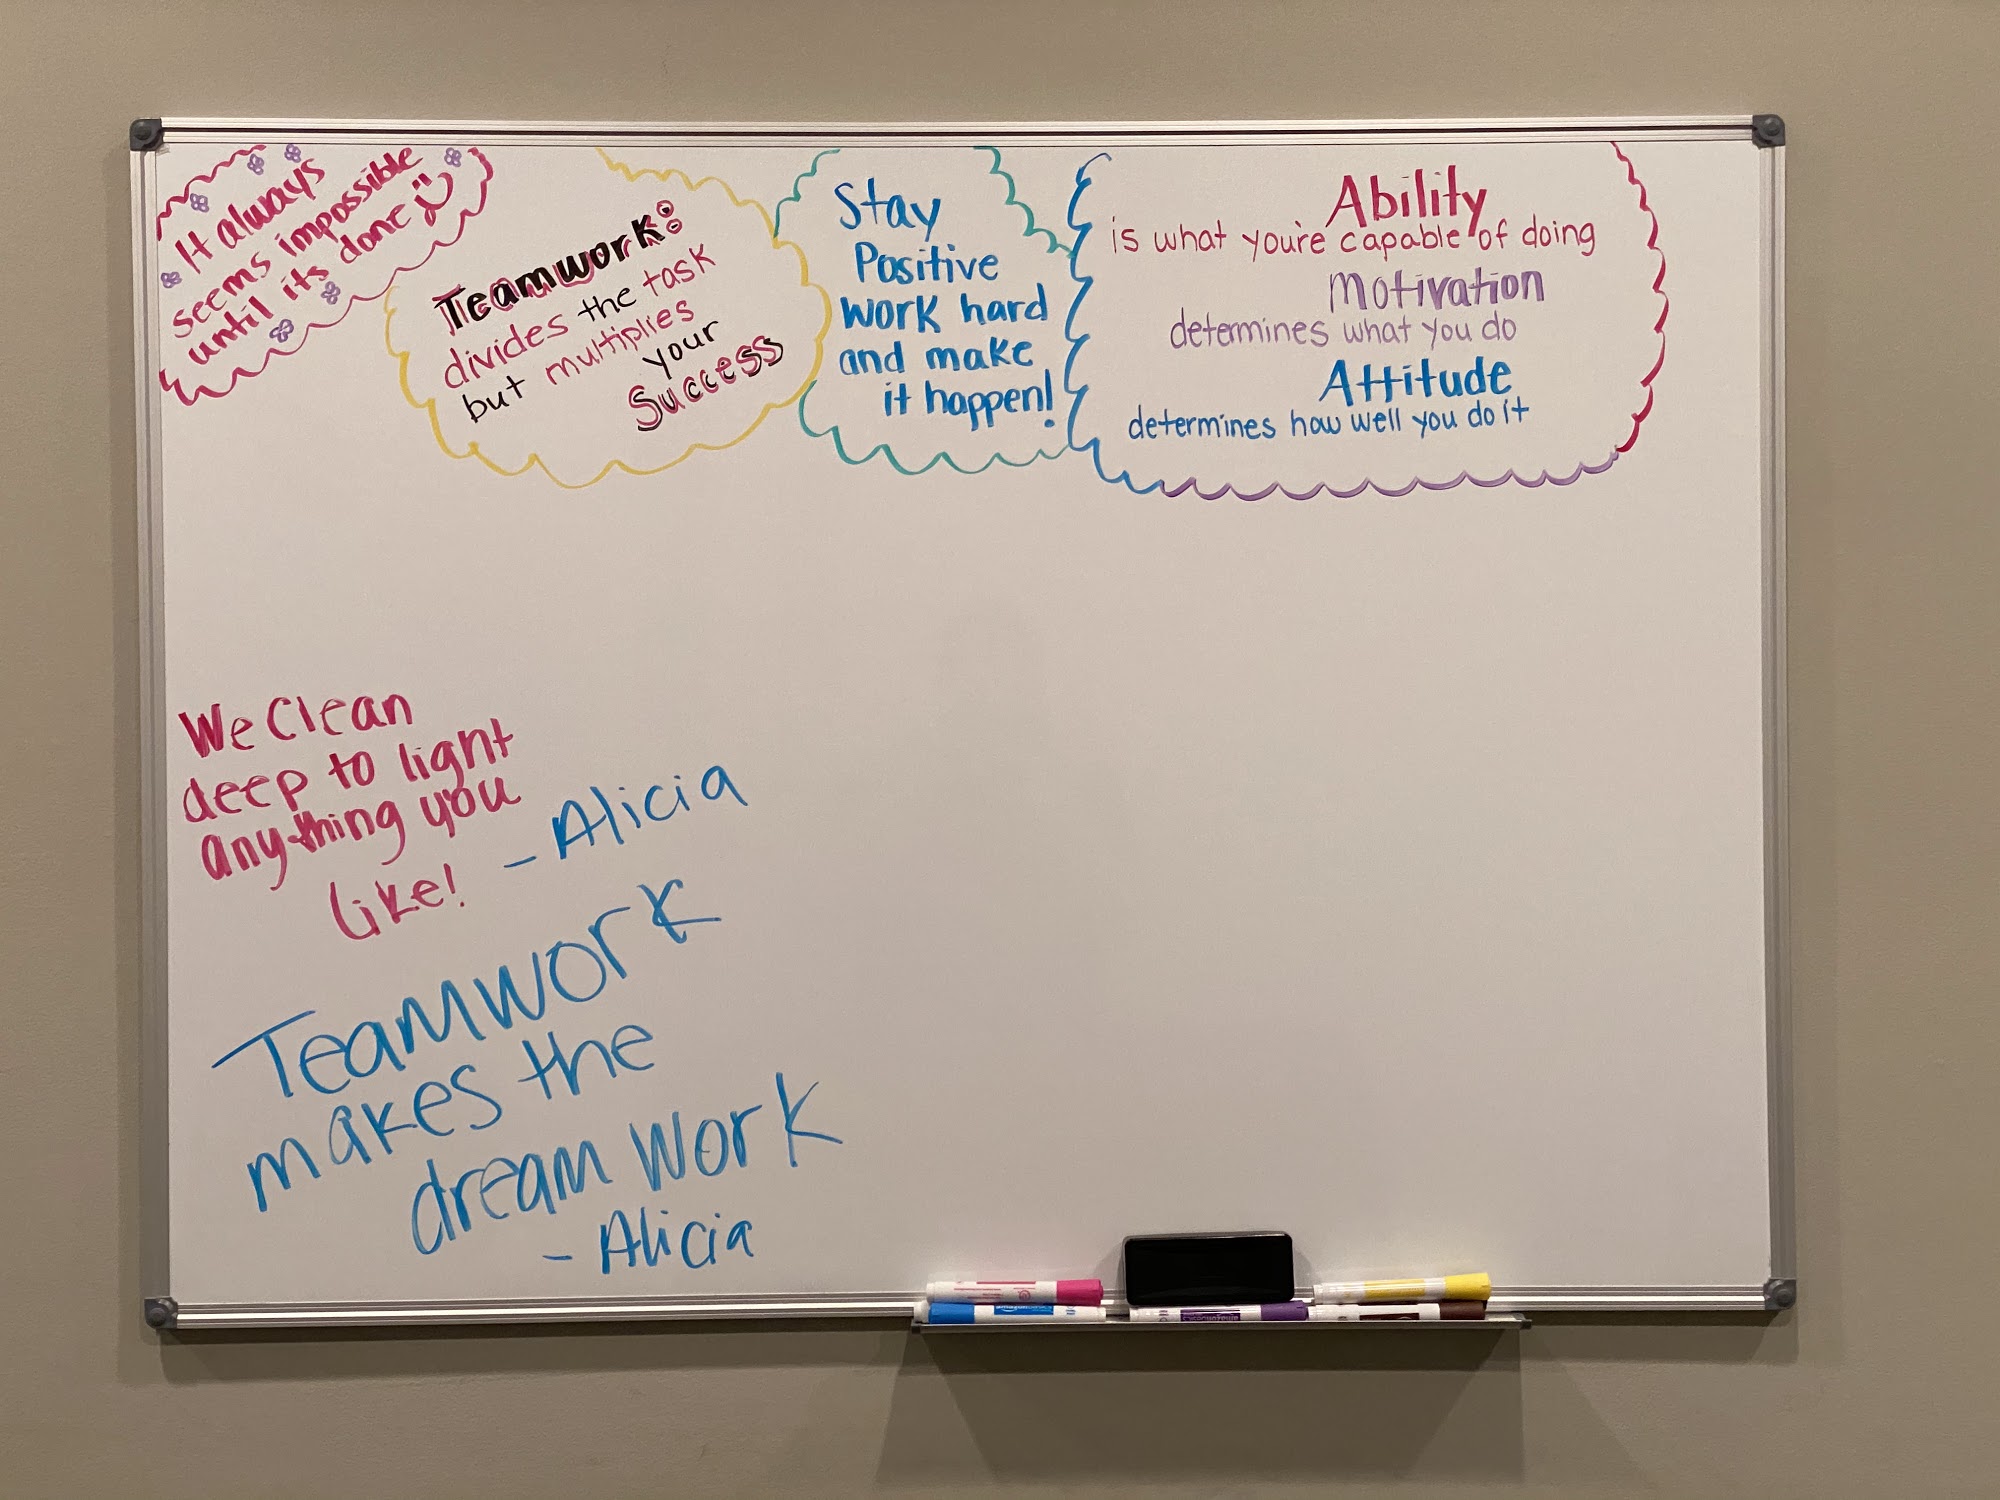 It always
seems impossible
until its done
Teamwork:
divides the task
but multiplies
your
Success
Stay
Positive
work hard
and make
it happen!
Ability
is what you're capable of doing
Motivation
determines what you do
Attitude
determines how well you do it
We Clean
deep to light
anything you
like! - Alicia
Teamwork
makes the
dream work
- Alicia